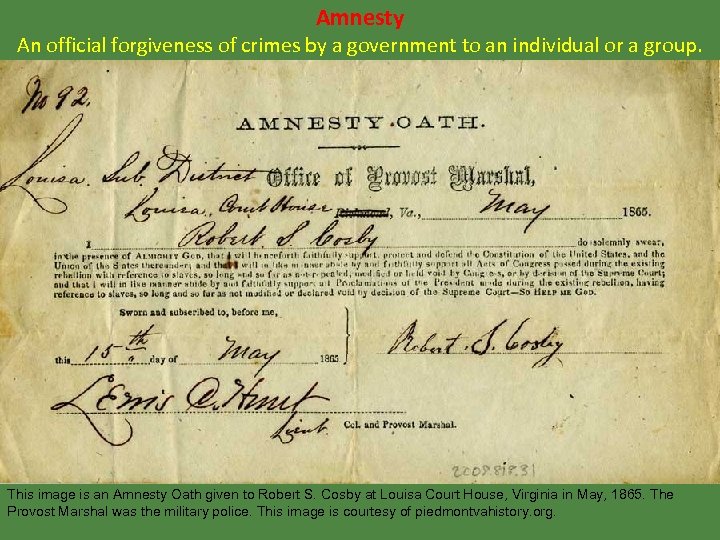 Amnesty
An official forgiveness of crimes by a government to an individual or a group.
No 92.
AMNESTY OATH.
Louisa Sub. District Office of Provost Marshal,
Louisa Court House Richmond, Va., May 1865.
I Robert S. Cosby do solemnly swear,
in the presence of ALMIGHTY GOD, that I will henceforth faithfully support, protect and defend the Constitution of the United States, and the
Union of the States thereunder; and that I will in like manner abide by and faithfully support all Acts of Congress passed during the existing
rebellion with reference to slaves, so long and so far as not repealed, modified or held void by Congress, or by decision of the Supreme Court;
and that I will in like manner abide by and faithfully support all Proclamations of the President made during the existing rebellion, having
reference to slaves, so long and so far as not modified or declared void by decision of the Supreme Court—SO HELP ME GOD.
Sworn and subscribed to, before me,
this 15th day of May 1865
Robert. S. Cosby
Lieut Col. and Provost Marshal.
2008.818.31
This image is an Amnesty Oath given to Robert S. Cosby at Louisa Court House, Virginia in May, 1865. The
Provost Marshal was the military police. This image is courtesy of piedmontvahistory.org.